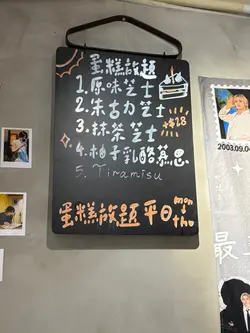 蛋糕放題
1. 原味芝士
2. 朱古力芝士
3. 抹茶芝士 +$28
4. 柚子乳酪慕思
5. Tiramisu
蛋糕放題平日 mon
thu
2003.09.04
最